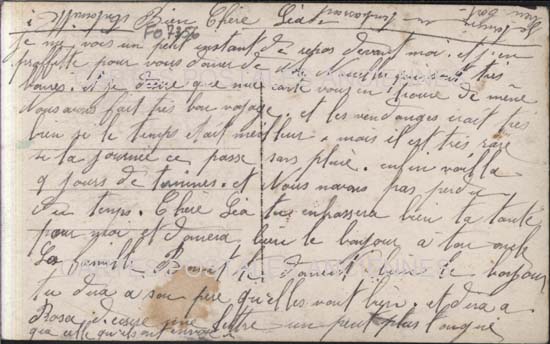 Bien Chère Léa
FO 7356
je me vois un petit instant de repos devant moi. et j'en
profite pour vous donner de nos Nouvelles très
bonnes. et je désire que ma carte vous en trouve de même
Nous avons fait très bon voyage, et les vendanges irait très
bien si le temps était meilleur. mais il est très rare
si la journée ce passe sans pluie. enfin voilla
9 jours de terminés. et Nous navons pas perdu
du temps. Chère Léa tu enpassera bien ta tante
pour moi et donnera bien le bonjour à ton oncle
La famille donnent bien le bonjour
tu dira a son père qu'elles vont bien. et dira a
Rosa décrire une lettre un peut plus longue
que celle qu'ils ont envoyé